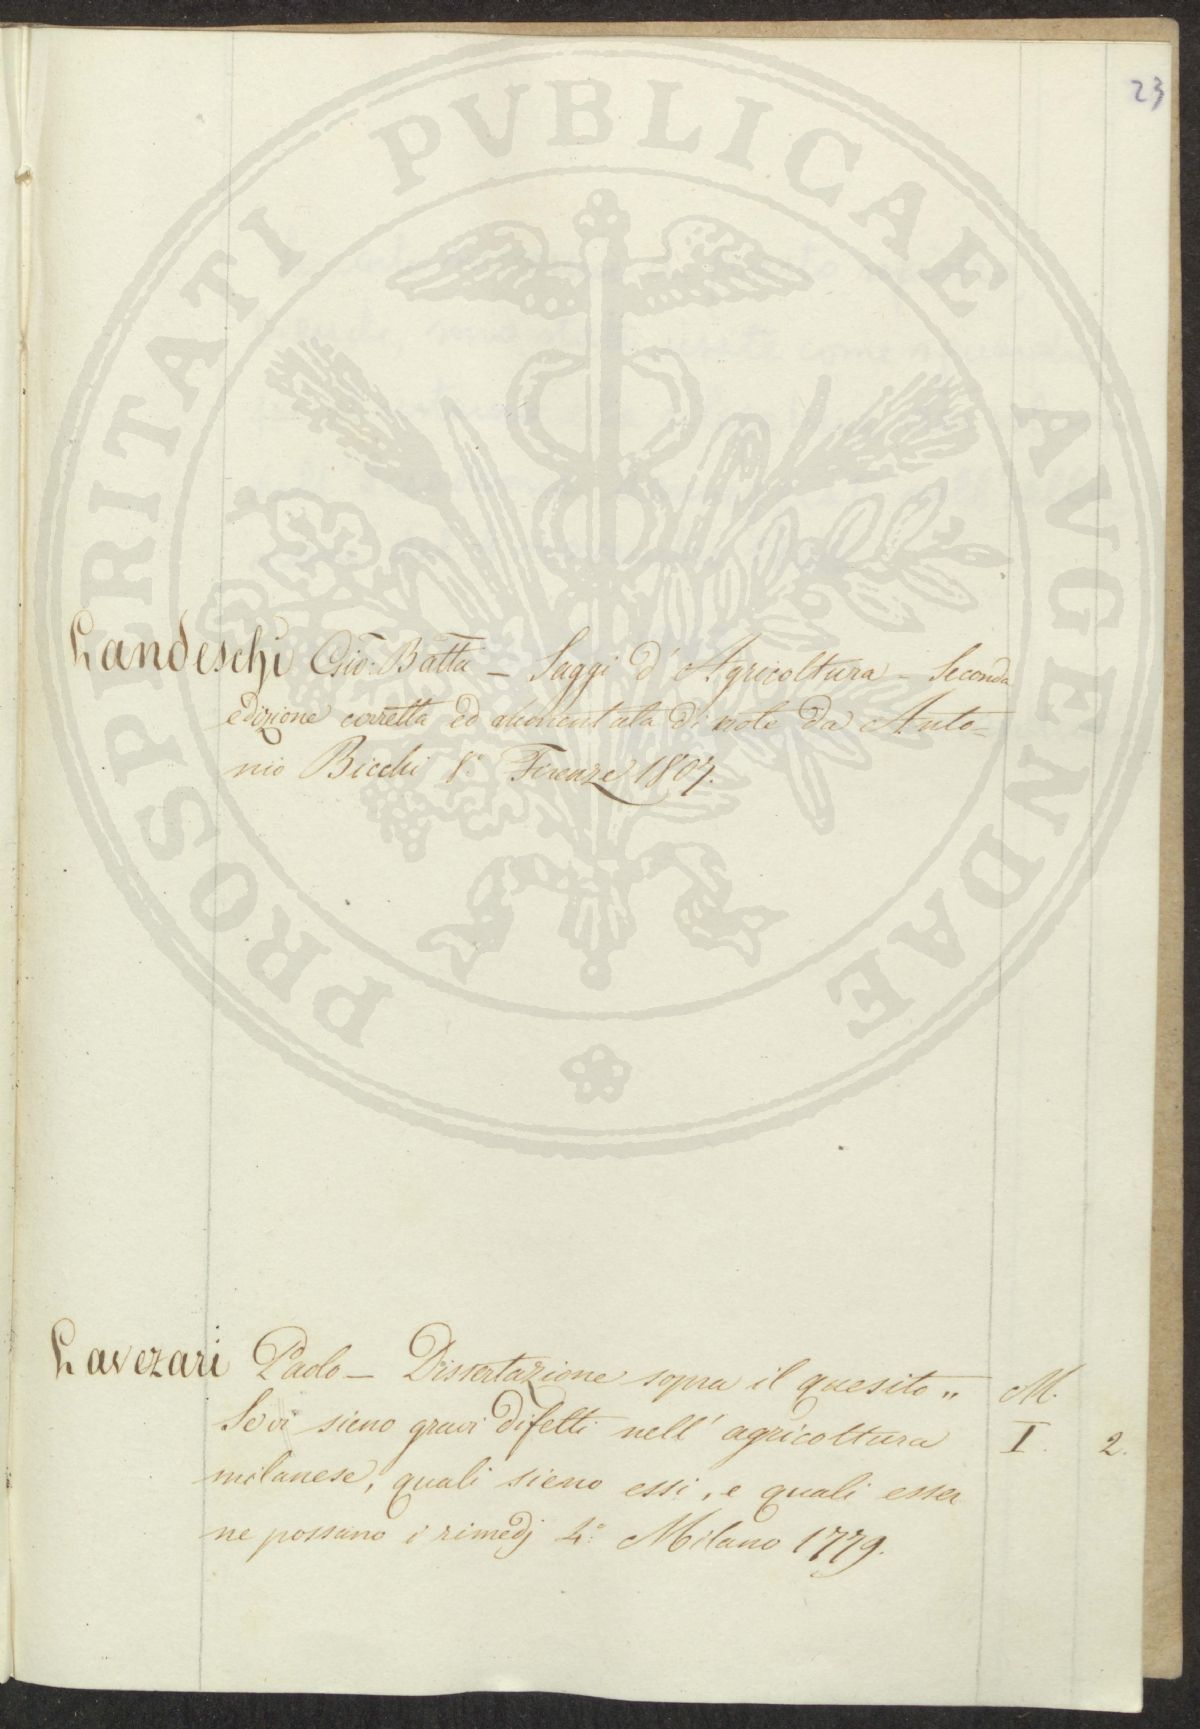 23
PROSPERITATI PVBLICAE AVGENDAE
Landeschi Gio: Batta – Saggi d'Agricoltura – Seconda
edizione corretta ed aumentata di note da Anto-
nio Bicchi 8.° Firenze 1807.
Lavezari Paolo – Dissertazione sopra il quesito „ M.
Se vi sieno gravi difetti nell' agricoltura I. 2.
milanese, quali sieno essi, e quali esser
ne possano i rimedj 4.° Milano 1779.